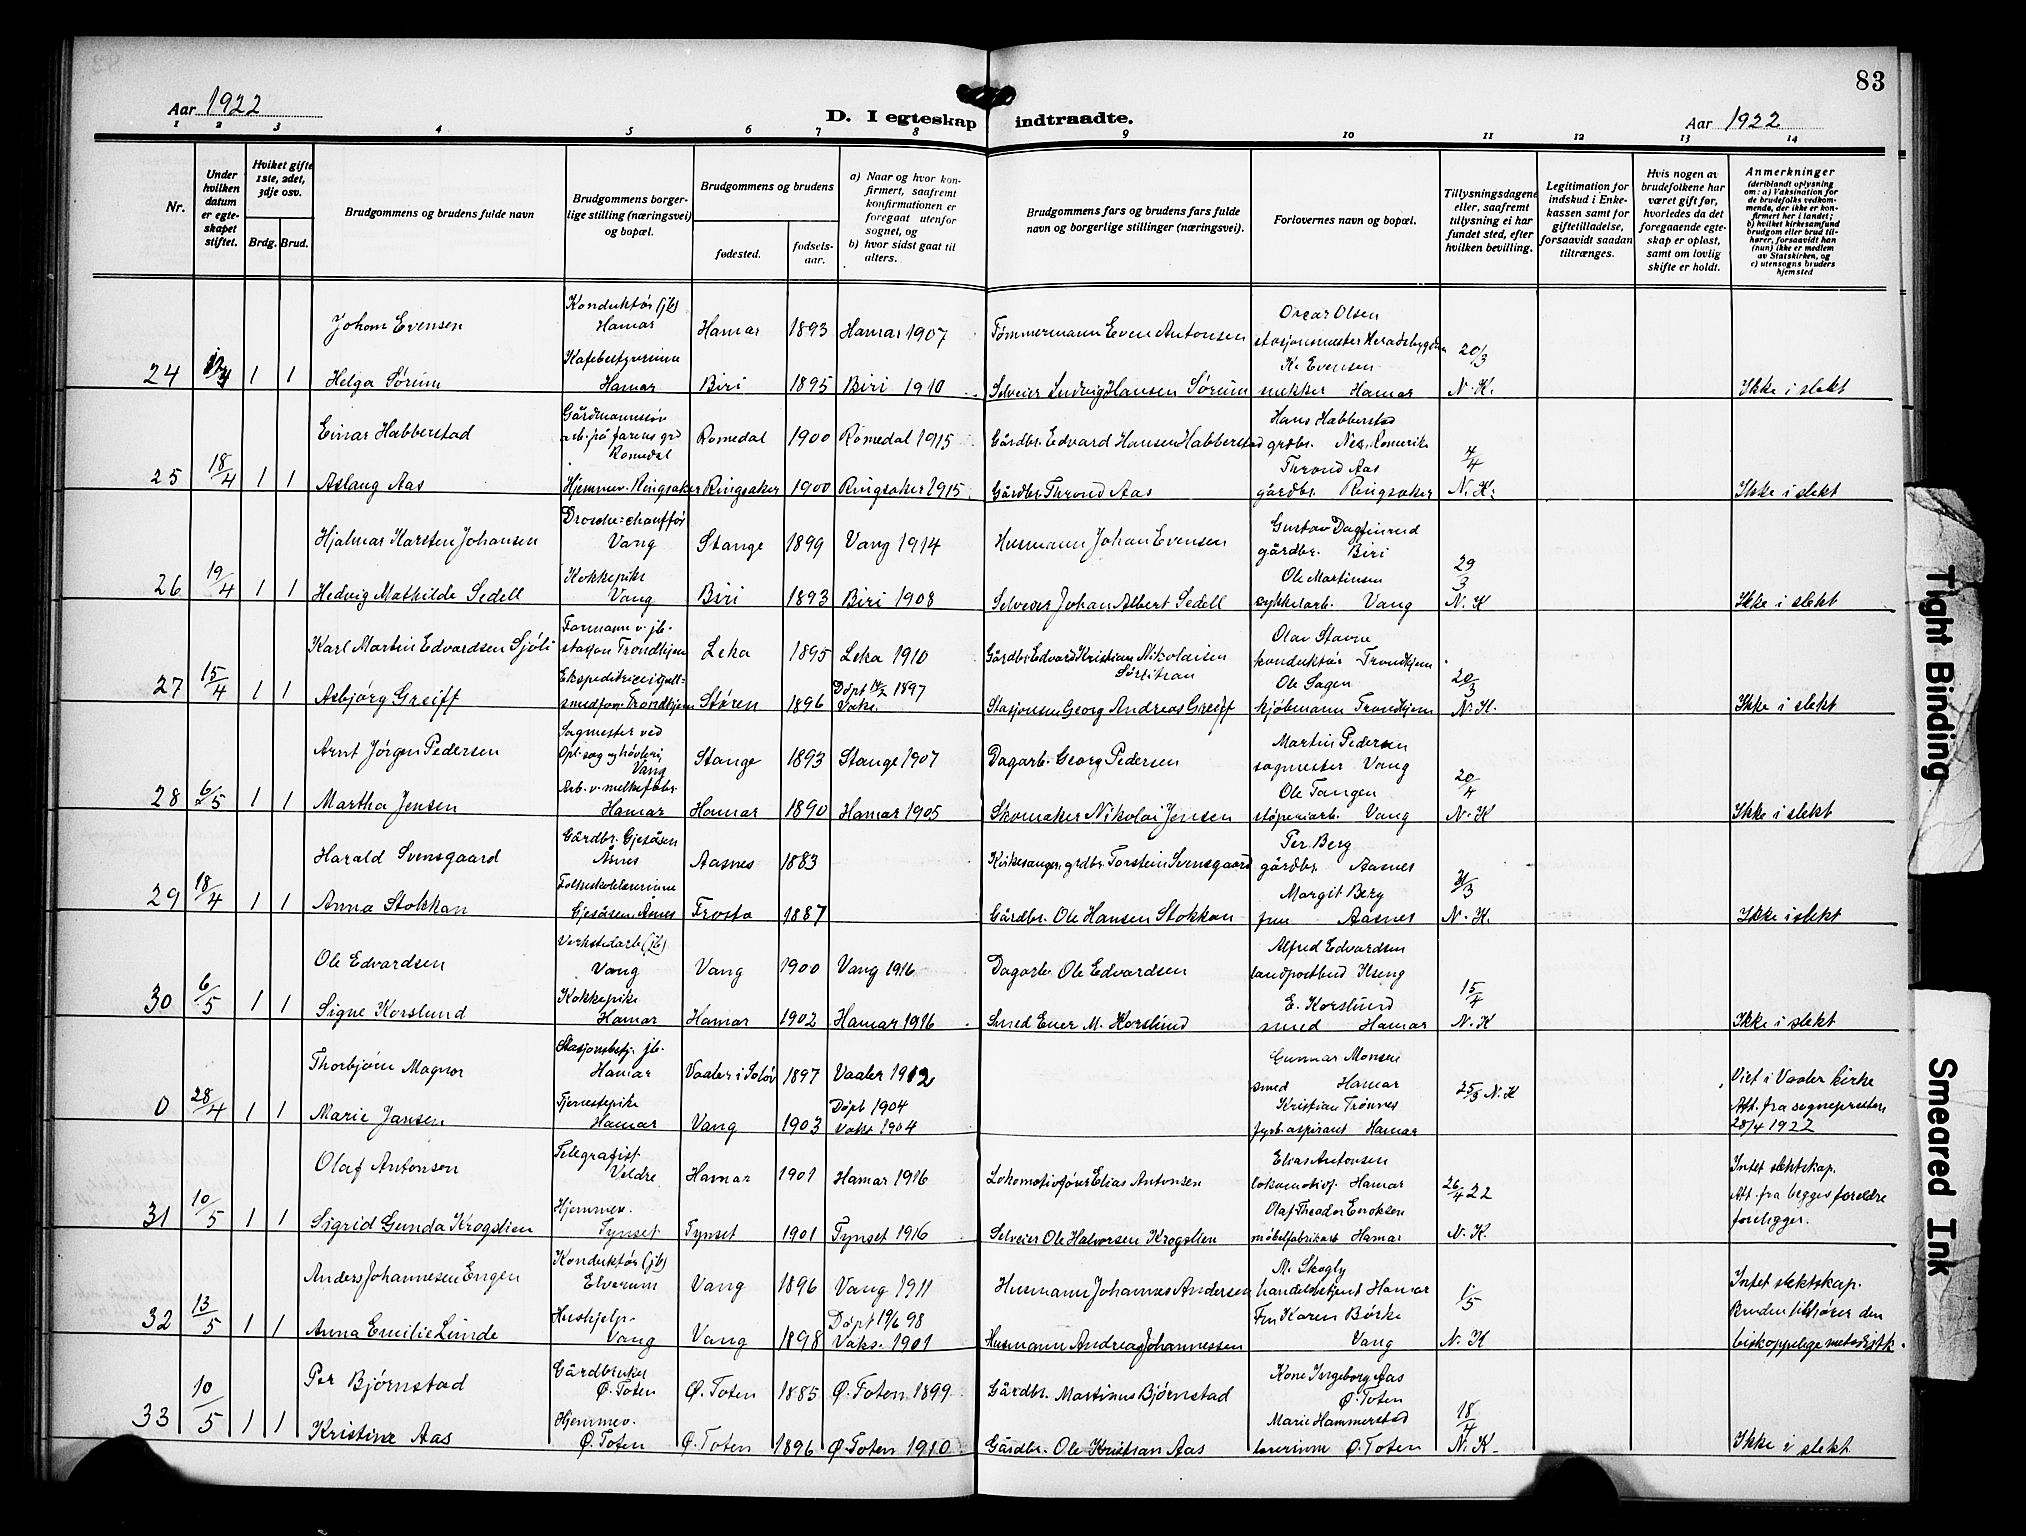 83
Aar 1922
D. I egteskap indtraadte.
Aar 1922
1 2 3 4 5 6 7 8 9 10 11 12 13 14
Nr.
Under hvilken datum er egteskapet stiftet.
Hviket gifte 1ste, 2det, 3dje osv.
Brdg. Brud.
Brudgommens og brudens fulde navn
Brudgommens borgerlige stilling (næringsvei) og bopæl.
Brudgommens og brudens
fødested.
fødselsaar.
a) Naar og hvor konfirmert, saafremt konfirmationen er foregaat utenfor sognet, og
b) hvor sidst gaat til alters.
Brudgommens fars og brudens fars fulde navn og borgerlige stillinger (næringsvei).
Forlovernes navn og bopæl.
Tillysningsdagene eller, saafremt tillysning ei har fundet sted, efter hvilken bevilling.
Legitimation for indskud i Enkekassen samt for giftetilladelse, forsaavidt saadan tiltrænges.
Hvis nogen av brudefolkene har været gift før, hvorledes da det foregaaende egteskap er opløst, samt om lovlig skifte er holdt.
Anmerkninger
(deriblandt oplysning om: a) Vaksination for de brudefolks vedkommende, der ikke er konfirmert her i landet; b) hvilket kirkesamfund brudgom eller brud tilhører, forsaavidt han (hun) ikke er medlem av Statskirken, og c) utensogns bruders hjemsted
Johan Evensen Konduktør (jb) Hamar Hamar 1893 Hamar 1907 Tømmermann Even Antonsen Oscar Olsen stasjonsmester Heradsbygden
24 1 1 Helga Sørum Kafebestyrerinne Hamar Biri 1895 Biri 1910 Selveier Ludvig Hansen Sørum K. Evensen snekker Hamar 20/3 N. K. Ikke i slekt
Einar Habberstad Gårdmannssøn arb. på farens grd Romedal Romedal 1900 Romedal 1915 Gårdbr. Edvard Hansen Habberstad Hans Habberstad grdbr. Nes, Romerike
25 18/4 1 1 Aslaug Aas Hjemmev. Ringsaker Ringsaker 1900 Ringsaker 1915 Gårdbr. Thrond Aas Thrond Aas gårdbr. Ringsaker 4/4 N. K. Ikke i slekt
Hjalmar Karsten Johansen Drosche-chauffør Vang Stange 1899 Vang 1914 Husmann Johan Evensen Gustav Dagfinrud gårdbr. Biri
26 19/4 1 1 Hedvig Mathilde Sedell Kokkepike Vang Biri 1893 Biri 1908 Selveier Johan Albert Sedell Ole Martinsen sykkelarb. Vang 29/3 N. K Ikke i slekt
Karl Martin Edvardsen Sjöli Formann v. jb.-stasjon Trondhjem Leka 1895 Leka 1910 Gårdbr. Edvard Kristian Nikolaisen Olav Stavne konduktør Trondhjem
27 15/4 1 1 Asbjörg Greiff Trondhjem Støren 1896 Døpt 1897 Vaks. Stasjonsm Georg Andreas Greiff Ole Sagen kjøbmann Trondhjem 20/3 N. K. Ikke i slekt
Arnt Jörgen Pedersen Sagmester ved Opl. sag og høvleri, Vang Stange 1893 Stange 1907 Dagarb. Georg Pedersen Martin Pedersen sagmester Vang
28 6/5 1 1 Martha Jensen Arb. v. melkefabr. Hamar Hamar 1890 Hamar 1905 Skomaker Nikolai Jensen Ole Tangen støperiarb. Vang 20/4 N. K Ikke i slekt
Harald Svensgaard Gårdbr. Gjesåsen Åsnes Aasnes 1883 Kirkesanger, grdbr. Torstein Svensgaard Per Berg gårdbr. Aasnes
29 18/4 1 1 Anna Stokkan Folkeskolelærerinne Gjesåsen, Åsnes Frosta 1887 Gårdbr. Ole Hansen Stokkan Margit Berg frue Aasnes 31/3 N. K. Ikke i slekt
Ole Edvardsen Verkstedarb (jb) Vang Vang 1900 Vang 1916 Dagarb. Ole Edvardsen Alfred Edvardsen landpostbud Ilseng
30 6/5 1 1 Signe Korslund Kokkepike Hamar Hamar 1902 Hamar 1916 Smed Ener M. Korslund E. Korslund smed Hamar 15/4 N. K Ikke i slekt
Thorbjørn Magnor Stasjonsbetj. jb. Hamar Vaaler i Solør 1897 Vaaler 1912 Gunnar Monsen smed Hamar
0 28/4 1 1 Marie Jansen Tjenestepike Hamar Vang 1903 Døpt 1904 Vaks 1904 Kristian Trønnes fyrb.aspirant Hamar 25/3 N. K Viet i Vaaler kirke Att. fra sognepresten 28/4 1922
Olaf Antonsen Telegrafist Veldre Hamar 1901 Hamar 1916 Lokomotivfører Elias Antonsen Elias Antonsen lokomotivf. Hamar
31 10/5 1 1 Sigrid Gunda Krogslien Hjemmev. Tynset Tynset 1901 Tynset 1916 Selveier Ole Halvorsen Krogslien Olaf Theodor Eriksen møbelfabrikarb Hamar 26/4 22 N. K. Intet slektskap. Att. fra begges foreldre foreligger.
Anders Johannesen Engen Konduktør (jb) Elverum Vang 1896 Vang 1911 Husmann Johannes Andersen M. Skogly handelsbetjent Hamar
32 13/5 1 1 Anna Emilie Linde Hushjelp Vang Vang 1898 Døpt 19/6 98 Vaks. 1901 Husmann Andreas Johannessen Fru Karen Børke Vang 1/5 N. K Intet slektskap. Bruden tilhører den biskoppelige metodistk.
Per Bjørnstad Gårdbruker Ø. Toten Ø. Toten 1885 Ø. Toten 1899 Gårdbr. Martinus Bjørnstad Kone Ingeborg Aas Ø. Toten
33 10/5 1 1 Kristine Aas Hjemmev. Ø. Toten Ø. Toten 1896 Ø. Toten 1910 Gårdbr. Ole Kristian Aas Marie Hammerstad lærerinne Ø. Toten 18/4 N. K. Ikke i slekt
Tight Binding
Smeared Ink